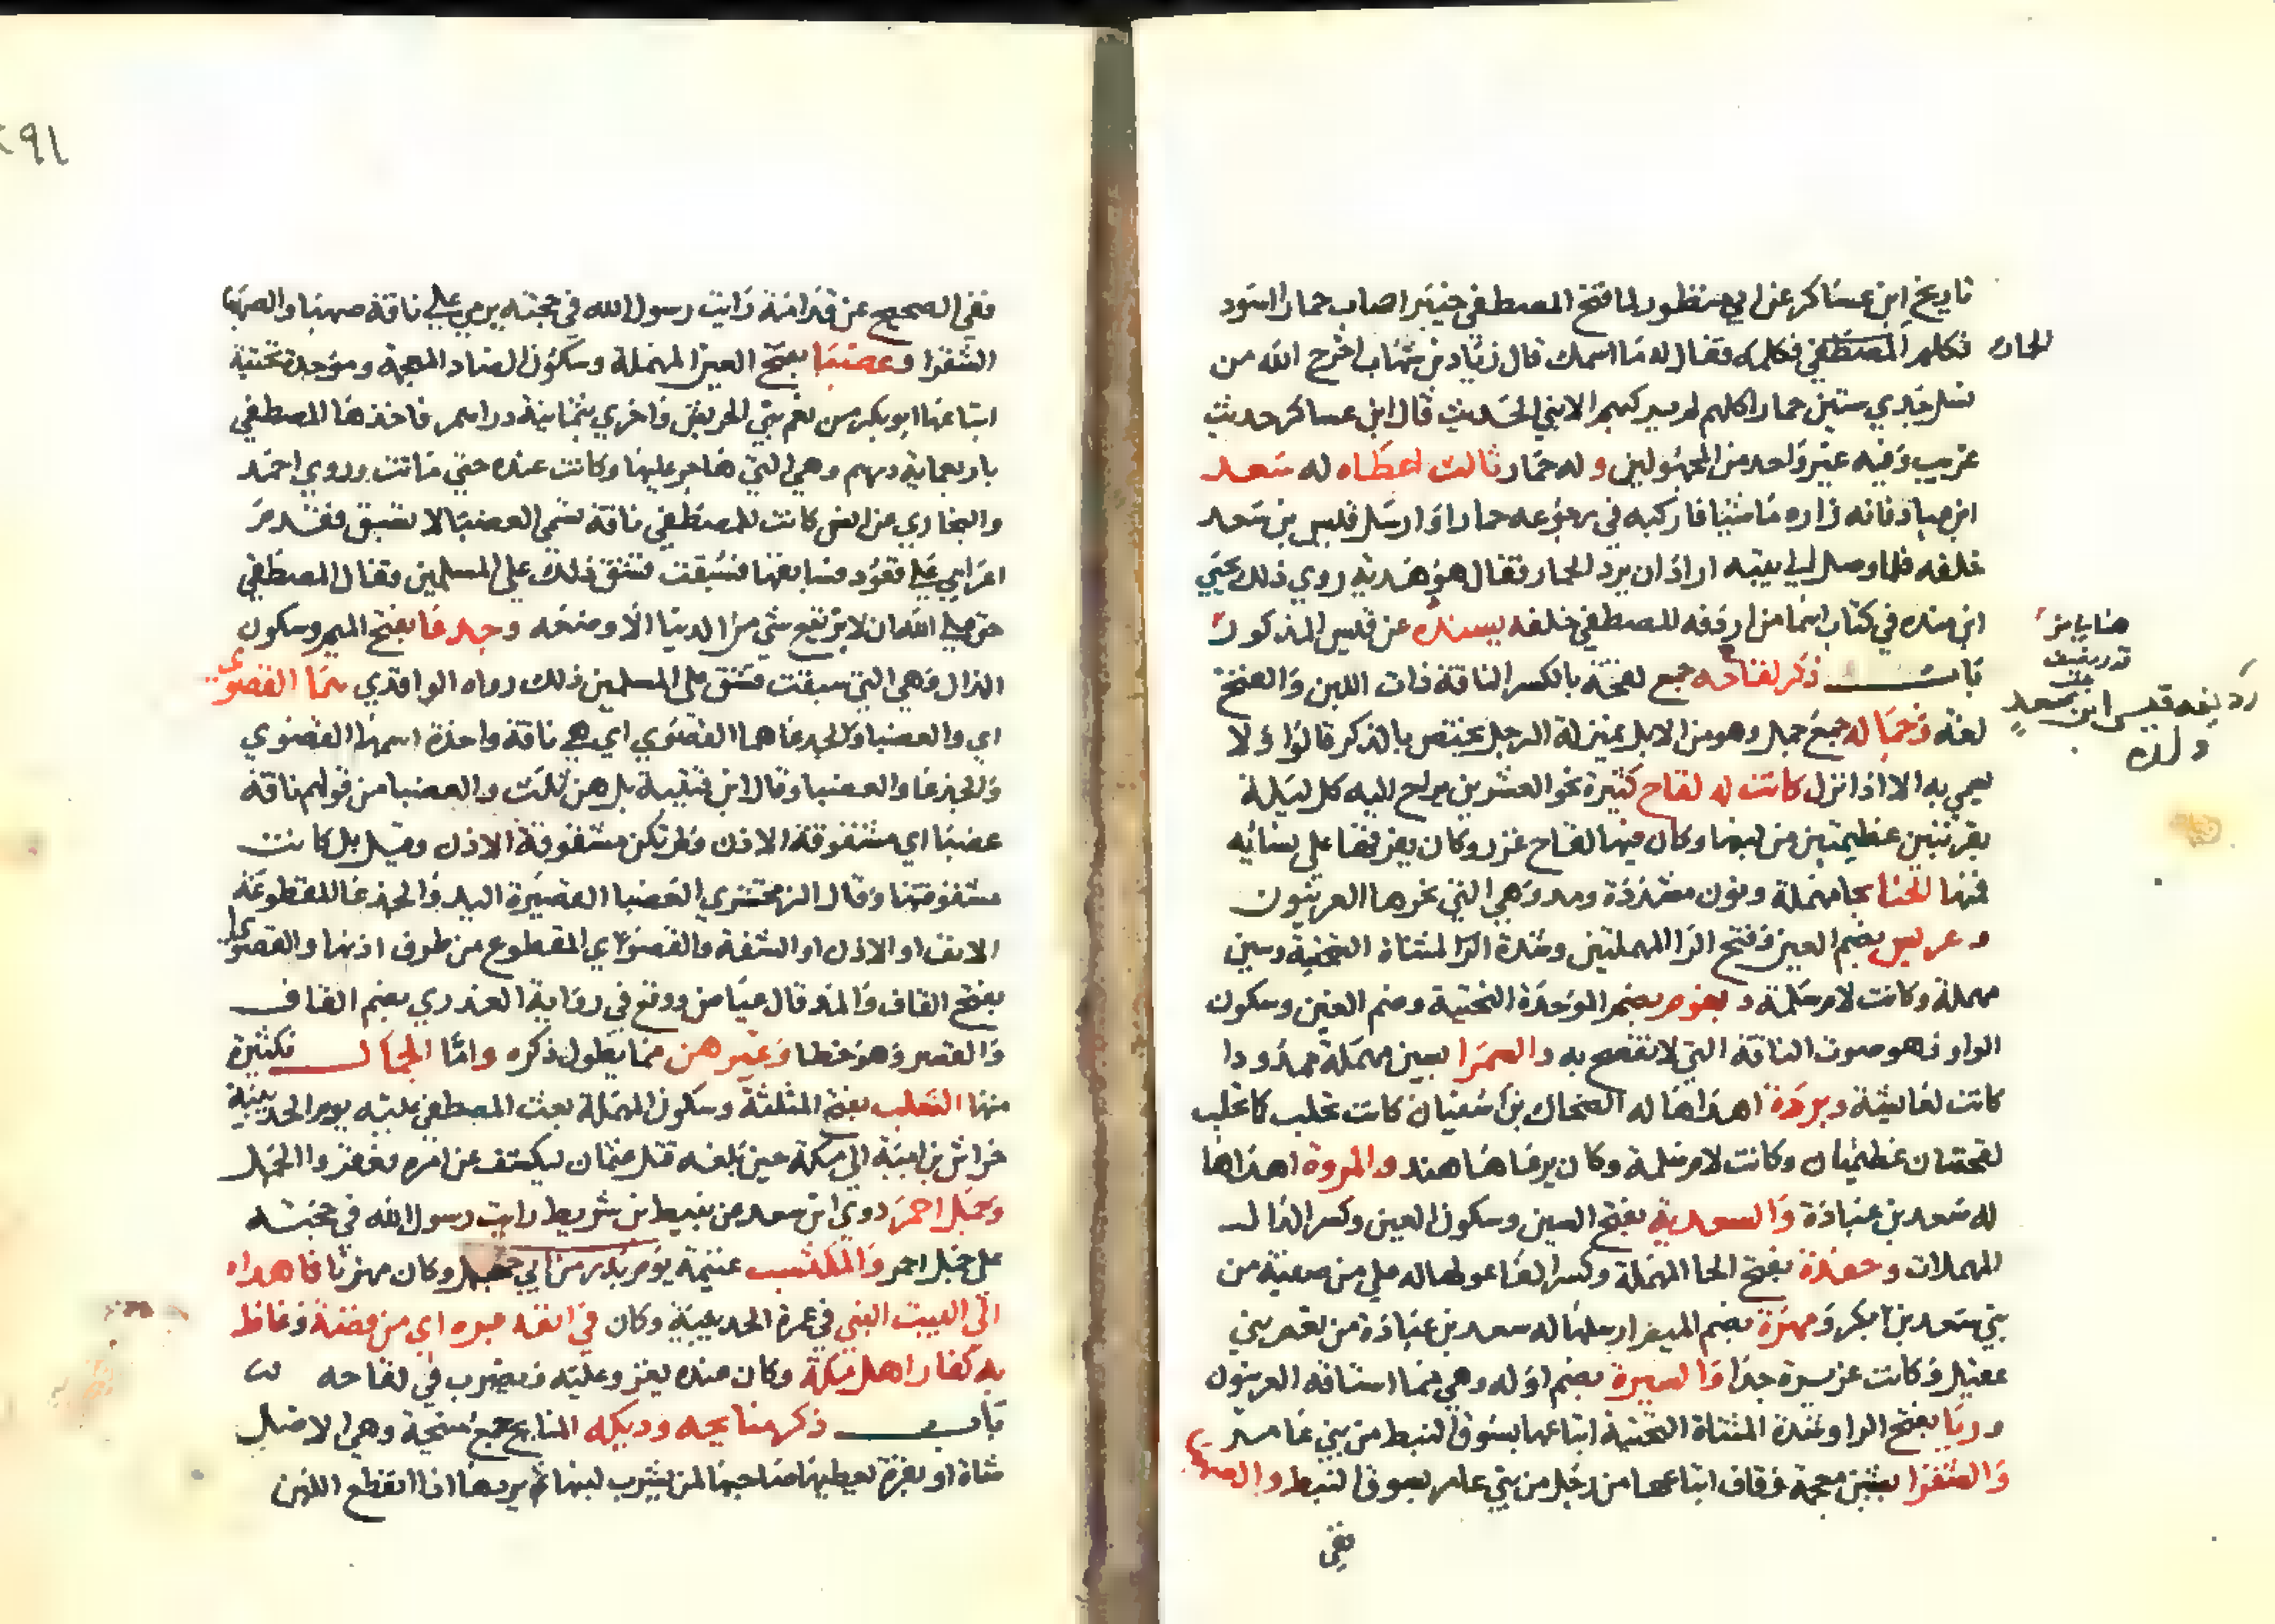 تاريخ ابن عساكر عن ابي منظور لما فتح المصطفى خيبر اصاب حمارا اسود
فكلم المصطفى فكلمه فقال له ما اسمك قال زياد بن شهاب اخرج الله من
الحمار
نسل جدي ستين حمارا كلهم لم يركبهم الا نبي الحديث قال ابن عساكر حديث
غريب وفيه غير واحد من المجهولين وله حمار ثالث اعطاه له سعد
ابن عبادة فانه زاره ماشيا فاركبه في رجوعه حمارا وارسل قيس بن سعد
خلفه فلما وصل الى بيته اراد ان يرد الحمار فقال هو هدية روي ذلك يحيى
ابن منده في كتاب اسما من اردفه المصطفى خلفه بسنده عن قيس المذكور
باب ذكر لقاحه جمع لقحة بالكسر الناقة ذات اللبن والفتح
لغة وجماله جمع جمل وهو من الابل بمنزلة الرجل يختص بالذكر قالوا ولا
يسمي به الا اذا نزل كانت له لقاح كثيرة نحو العشرين يراح اليه كل ليلة
بقربتين عظيمتين من لبنها وكان فيها لقاح غزر وكان يفرقها على نسائه
فمنها الحنا بحا مهملة ونون مشددة ومد وهي التي نحرها العرنيون
وعريس بضم العين وفتح الرا المهملتين وشدة الرا المثناة التحتية وسين
مهملة وكانت لام سلمة وبغوم بضم الموحدة التحتية وضم الغين وسكون
الواو وهو صوت الناقة التي لا تفصح به والسمرا بسين مهملة ممدودا
كانت لعايشة وبردة اهداها له الضحاك بن سفيان كانت تحلب كما تحلب
لقحتان عظيمتان وكانت لام سلمة وكان يرعاها هند والمروة اهداها
له سعد بن عبادة والسعدية بفتح السين وسكون العين وكسر الدال
المهملات وحفدة بفتح الحا المهملة وكسر الفا
بني سعد بن بكر ومهرة بضم الميم ارسلها له سعد بن عبادة من نعم بني
عقيل وكانت غزيرة جدا واليسيرة بضم اوله وهي مما استاقه العرنيون
وريا بفتح الرا وشدة المثناة التحتية ابتاعها بسوق النبط من بني عامر
والشقرا بشين معجمة وقاف ابتاعها من رجل من بني عامر بسوق النبط والصهبا
ففي
رديفه قيس ابن سعد
ولده
٢٩١
ففي الصحيح عن قدامة رايت رسول الله في حجته يرمي على ناقة صهبا والصهبا
الشقرا وعضبا بفتح العين المهملة وسكون الضاد المعجمة وموحدة تحتية
ابتاعها ابو بكر من نعم بني الحريش واخرى بثمانية دراهم فاخذها المصطفى
باربعماية درهم وهي التي هاجر عليها وكانت عنده حتى ماتت وروي احمد
والبخاري عن انس كانت للمصطفى ناقة تسمى العضبا لا تسبق فقدم
اعرابي على قعود فسابقها فسبقت فشق ذلك على المسلمين فقال المصطفى
حق على الله ان لا يرتفع شي من الدنيا الا وضعه وجدعا بفتح الميم وسكون
الدال وهي التي سبقت فشق على المسلمين ذلك رواه الواقدي هما القصوى
اي والعضبا والجدعا هما القصوى اي هي ناقة واحدة اسمها القصوى
والجدعا والعضبا وقال ابن قتيبة بل هن ثلاث والعضبا من قولهم ناقة
عضبا اي مشقوقة الاذن ولم تكن مشقوقة الاذن وقيل بل كانت
مشقوقتها وقال الزمخشري العضبا القصيرة اليد والجدعا المقطوعة
الانف او الاذن او الشفة والقصو اي المقطوع من طرف اذنها والقصوا
بفتح القاف والمد قال عياض ووقع في رواية العذري بضم القاف
والقصر وهو خطا وغيرهن مما يطول ذكره واما الجمال فكثيرة
منها الثعلب بفتح المثلثة وسكون المهملة بعث المصطفى عليه يوم الحديبية
خراش بن امية الى مكة حين بلغه قتل عثمان ليكشف عن امره فعقروا الجمل
وجمل احمر روي ابن سعد عن نبيط بن شريط رايت رسول الله في حجته
على جمل احمر والمكتسب غنيمة يوم بدر من ابي جهل وكان مهريا فاهداه
الى البيت العتيق في عمرة الحديبية وكان في انفه بره اي من فضة وغاظ
به كفار اهل مكة وكان عنده يغزو عليه ويضرب في لقاحه
باب ذكر منايحه وديكه المنايح جمع منيحة وهي الاصل
شاة او بقرة يعطيها صاحبها لمن يشرب لبنها ثم يردها اذا انقطع اللبن